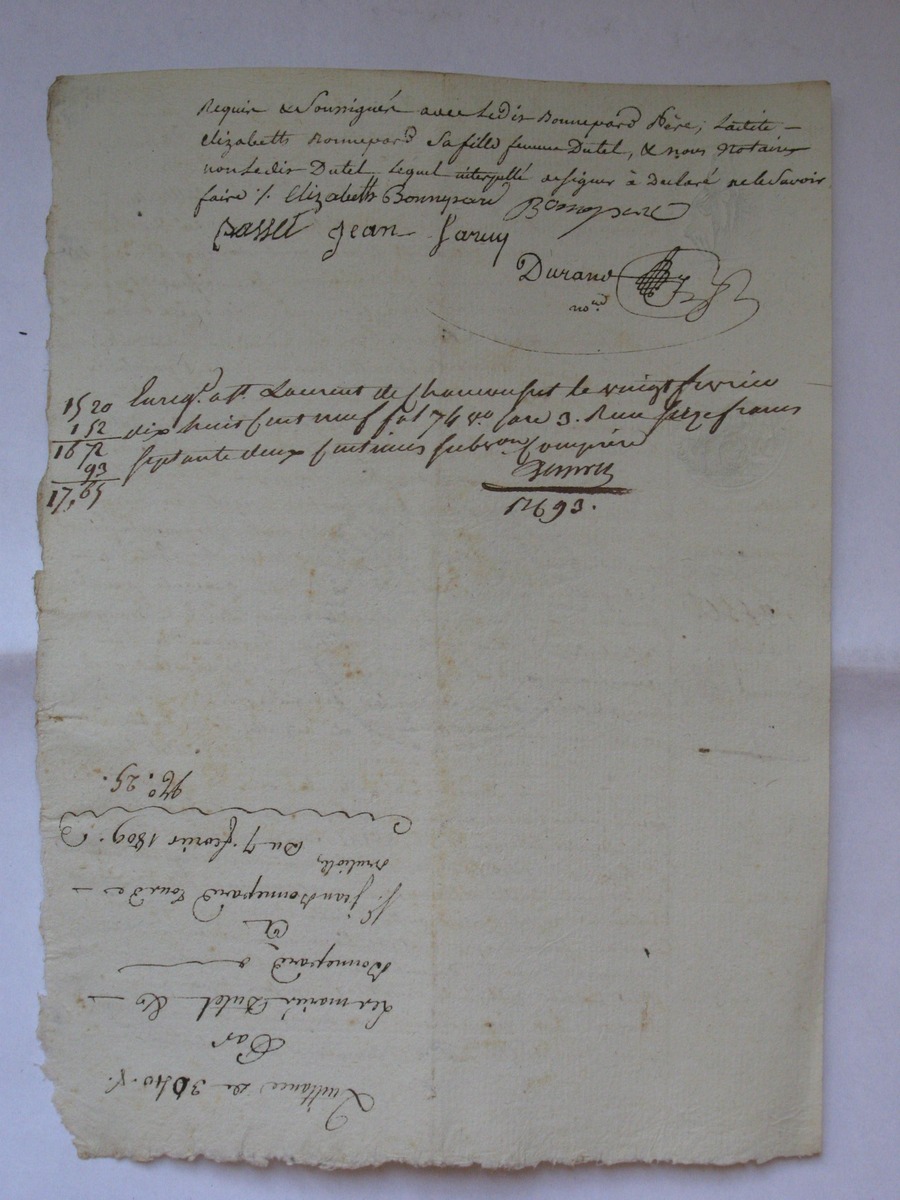 Requis & Soussignés avec Ledit Bonnepard Père, Ladite
Elizabeth Bonnepard Sa fille femme Dutel, & nous Notaire
non Ledit Dutel Lequel interpellé de signer à Declaré ne le Savoir
faire /. Elizabeth Bonnepard Bonnepard
Basset Jean Faruy
Durand
no.re
1520
152
1672
93
17,65
Enreg. a St. Laurent de Chamousset le vingt fevrier
dix huit cent neuf fo. 174 vo. Case 3. Reçu Seize francs
septante deux centimes subvon. Comprise
12693.
Quittance de 3040.
Par
Les mariés Dutel &
Bonnepard
A
Sr. Jean Bonnepard
Du 7. fevrier 1809.
No. 25.